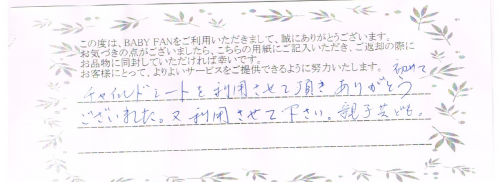 この度は、BABY FANをご利用いただきまして、誠にありがとうございます。
お気づきの点がございましたら、こちらの用紙にご記入いただき、ご返却の際に
お品物に同封していただければ幸いです。
お客様にとって、よりよいサービスをご提供できるように努力いたします。
初めて
チャイルドシートを利用させて頂きありがとう
ございました。又利用させて下さい。親子共ども,